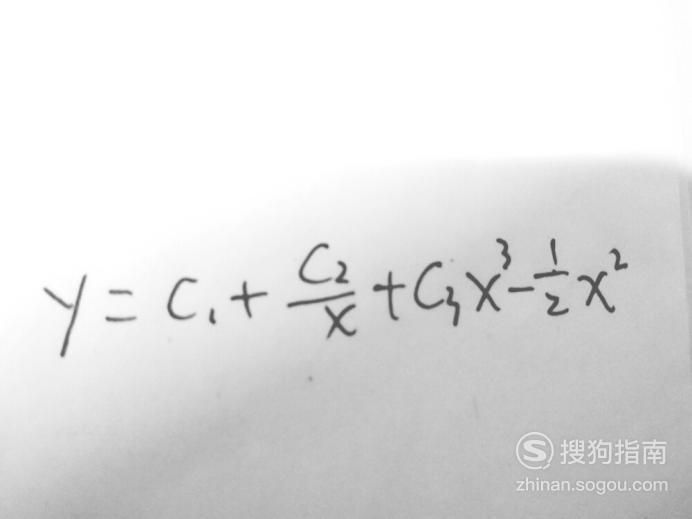 y = C₁ + C₂/x + C₃x³ - 1/2 x²
搜狗指南
zhinan.sogou.com